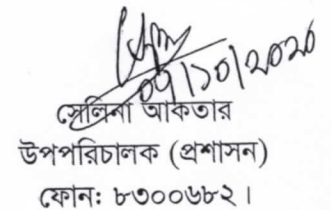 ০৭/১০/২০২০
সেলিনা আকতার
উপপরিচালক (প্রশাসন)
ফোন: ৮৩০০৬৮২।